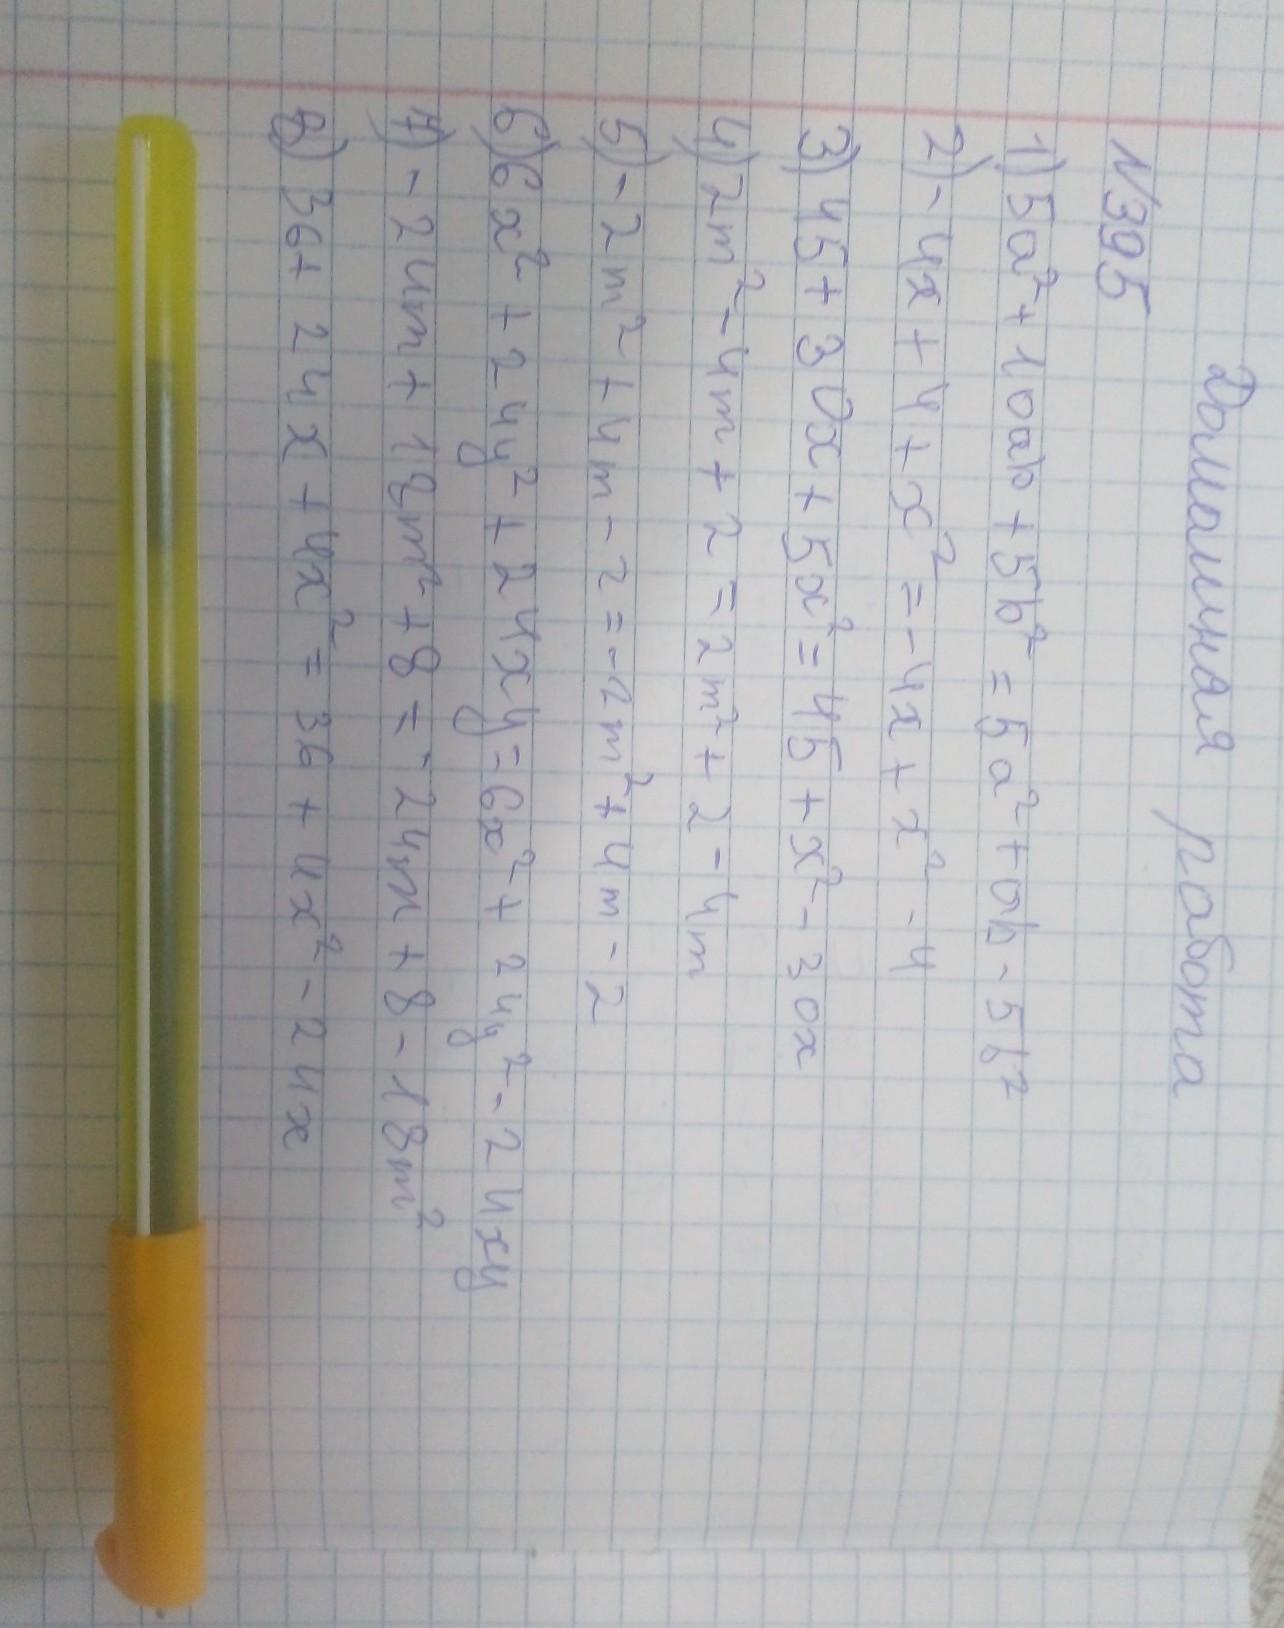 Домашняя работа
№395
1) 5a² + 10ab + 5b² = 5a² + ab - 5b²
2) - 4x + 4 + x² = - 4x + x² - 4
3) 45 + 30x + 5x² = 45 + x² - 30x
4) 2m² - 4m + 2 = 2m² + 2 - 4m
5) - 2m² + 4m - 2 = - 2m² + 4m - 2
6) 6x² + 24y² + 24xy = 6x² + 24y² - 24xy
7) - 24m + 18m² + 8 = - 24m + 8 - 18m²
8) 36 + 24x + 4x² = 36 + 4x² - 24x